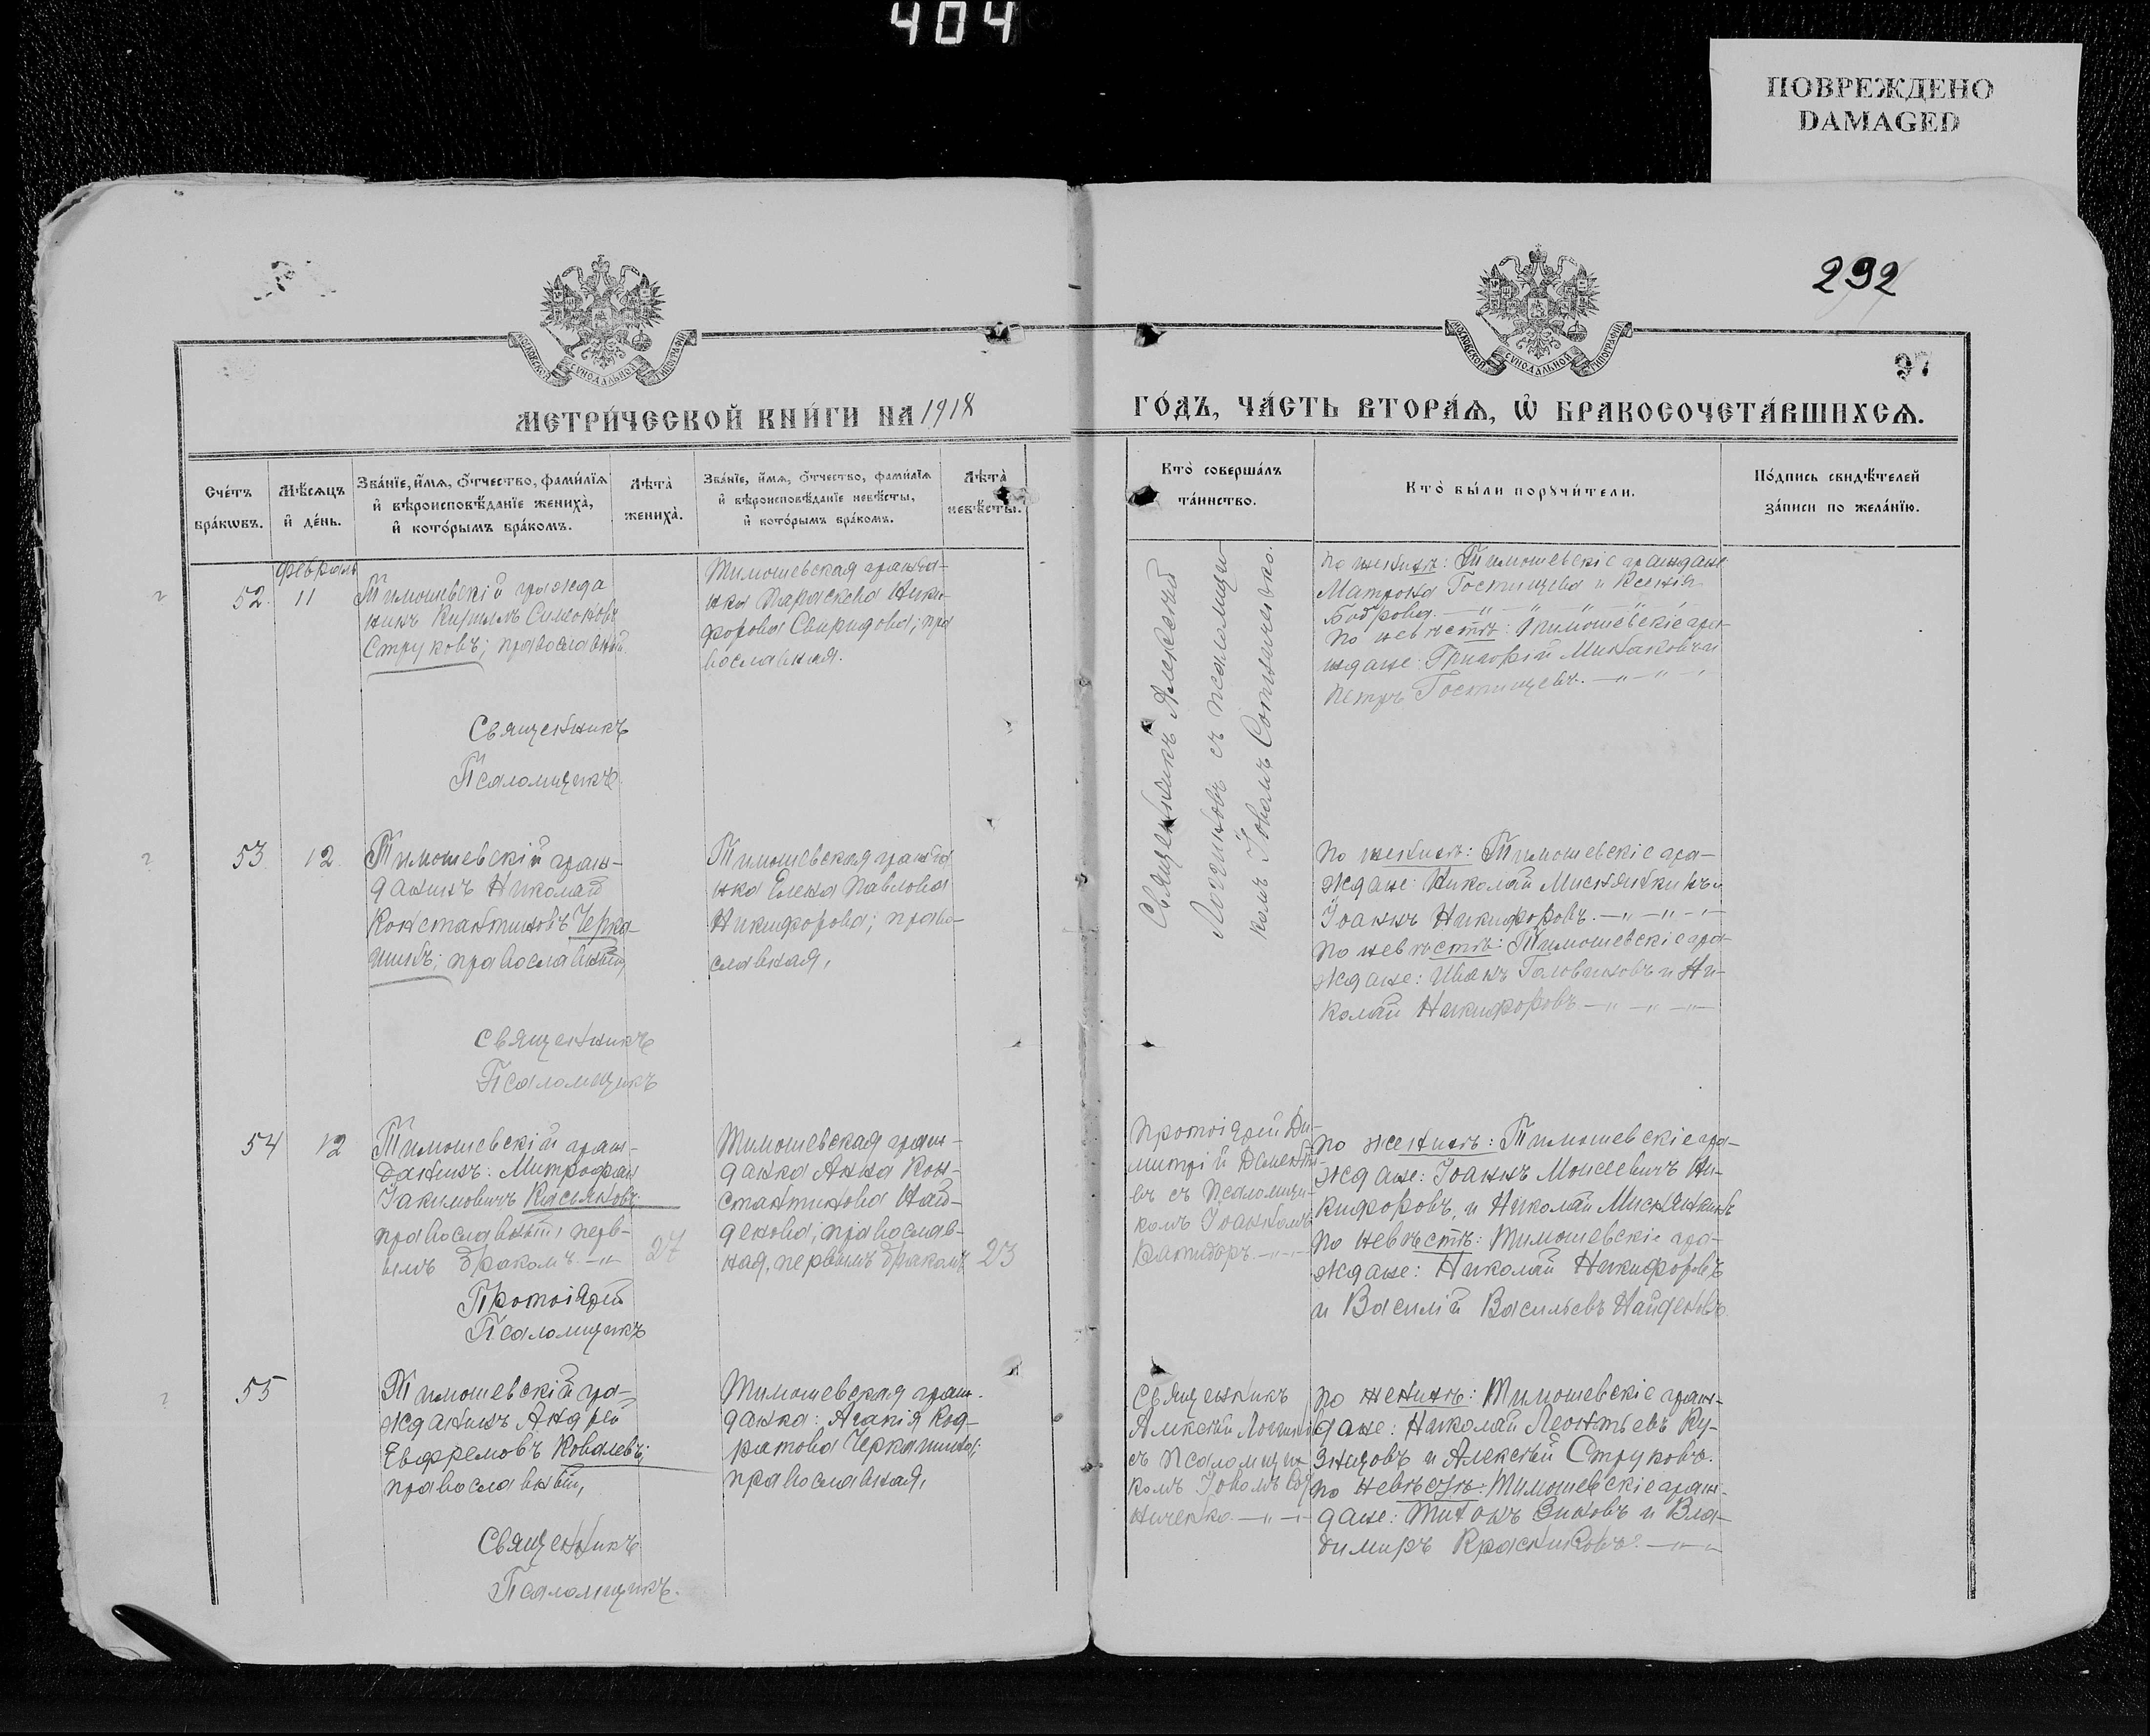 404
ПОВРЕЖДЕНО
DAMAGED
292
97
МОСКОВСКОЙ СѴНОДАЛЬНОЙ ТИПОГРАФІИ
МОСКОВСКОЙ СѴНОДАЛЬНОЙ ТИПОГРАФІИ
МЕТРИ́ЧЕСКОЙ КНИ́ГИ НА 1918
ГО́ДЪ, ЧА́СТЬ ВТОРА́Ѧ, Ѡ҆ БРАКОСОЧЕТА́ВШИХСѦ.
Сче́тъ
бра́кѡвъ.
Мѣ́сѧцъ
и҆ де́нь.
Зва́нїе, и҆́мѧ, ѻ҆́тчество, фами́лїѧ
и҆ вѣроисповѣ́данїе жениха̀,
и҆ кото́рымъ бра́комъ.
Лѣ́та̀
жениха̀.
Зва́нїе, и҆́мѧ, ѻ҆́тчество, фами́лїѧ
и҆ вѣроисповѣ́данїе невѣ́сты,
и҆ кото́рымъ бра́комъ.
Лѣ́та̀
невѣ́сты.
Кто̀ соверша́лъ
та́инство.
Кто̀ бы́ли порꙋчи́тели.
По́дпись свидѣ́телей
за́писи по жела́нїю.
52
февраль
11
Тимошевскій гражда
нинъ Симеоновъ
Струковъ; православный.
Священникъ
Псаломщикъ.
Тимошевская гражда-
нка Параскева Ники-
форова Свиридова; пра
вославная.
Священникъ Алексей
Логиновъ съ псаломщи
комъ Іовомъ Сотниченко.
По женихѣ: Тимошевскіе граждане
Матрона Гостищева и Ксенія
Боброва. —〃—〃—〃—
По невѣстѣ: Тимошевскіе гра-
ждане: Григорій и
Петръ Гостищевъ. —〃—〃—
53
12
Тимошевскій граж-
данинъ Николай
Константиновъ Черка-
шинъ; православный,
Священникъ
Псаломщикъ
Тимошевская гражда
нка Елена Павлова
Никифорова; право-
славная,
По женихѣ: Тимошевскіе гра-
ждане: Николай Миснянкинъ и
Іоаннъ Никифоровъ. —〃—〃—
По невѣстѣ: Тимошевскіе гра-
ждане: Иванъ Головиновъ и Ни-
колай Никифоровъ —〃—〃—
54
12
Тимошевскій граж-
данинъ: Митрофан
Іакимовичъ Касьяновъ
православный, перв-
ымъ бракомъ. —〃
27
Протоіерей
Псаломщикъ
Тимошевская граж-
данка Анна Кон-
стантинова Най-
денова, православ-
ная, первымъ бракомъ
23
Протоіерей Ди-
митрій
въ съ Псаломщи-
комъ Іоанномъ
По женихѣ: Тимошевскіе гра-
ждане: Іоаннъ Моисеевичъ Ни-
кифоровъ, и Николай Миснянкинъ
По невѣстѣ: Тимошевскіе гра-
ждане: Николай Никифоровъ
и Василій Васильевъ Найденовъ.
55
Тимошевскій гра-
жданинъ Андрей
Евфремовъ Ковалевъ;
православный,
Священникъ
Псаломщикъ.
Тимошевская граж-
данка: Агапія Код-
ратова Черкашина;
православная,
Священникъ
Алексей
съ Псаломщи
комъ Іовомъ
ниченко. —〃—
По женихѣ: Тимошевскіе граж-
дане: Николай Леонтьевъ Ку-
знецовъ и Алексѣй Струковъ.
По невѣстѣ: Тимошевскіе граж-
дане: Титъ Зиновъ и Вла-
димиръ Красниковъ. —〃—